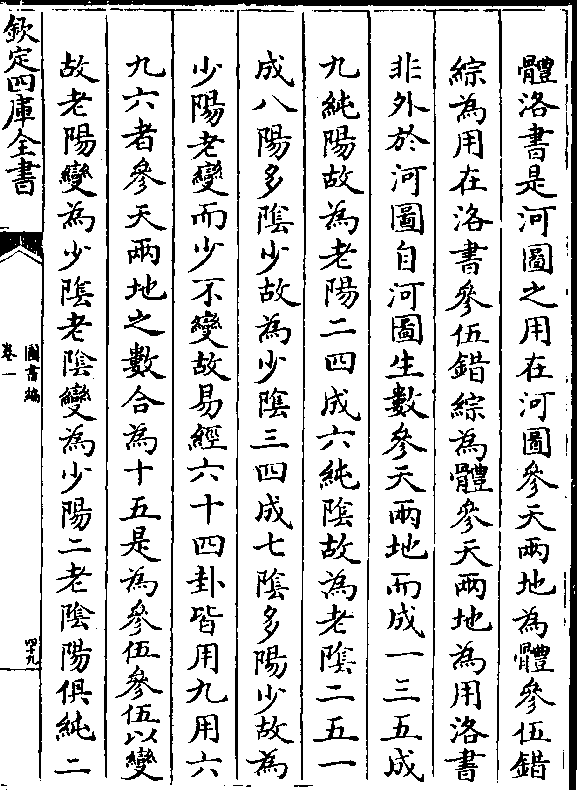 體洛書是河圖之用在河圖參天兩地為體參伍錯
綜為用在洛書參伍錯綜為體參天兩地為用洛書
非外於河圖自河圖生數參天兩地而成一三五成
九純陽故為老陽二四成六純陰故為老陰二五一
成八陽多陰少故為少陰三四成七陰多陽少故為
少陽老變而少不變故易經六十四卦皆用九用六
九六者參天兩地之數合為十五是為參伍參伍以變
故老陽變為少陰老陰變為少陽二老陰陽俱純二
欽定四庫全書
圖書編
卷一
四十九